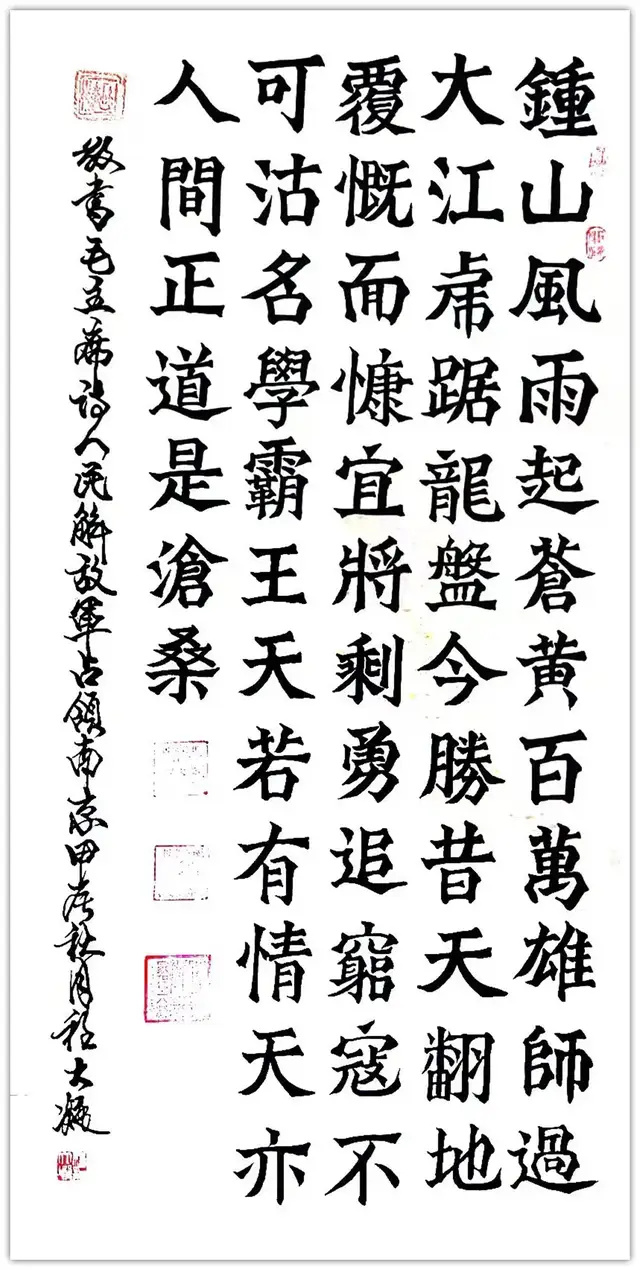 鍾山風雨起蒼黃百萬雄師過
大江虎踞龍盤今勝昔天翻地
覆慨而慷宜將剩勇追窮寇不
可沽名學霸王天若有情天亦
人間正道是滄桑
敬書毛主席诗人民解放軍占領南京甲辰秋月程大